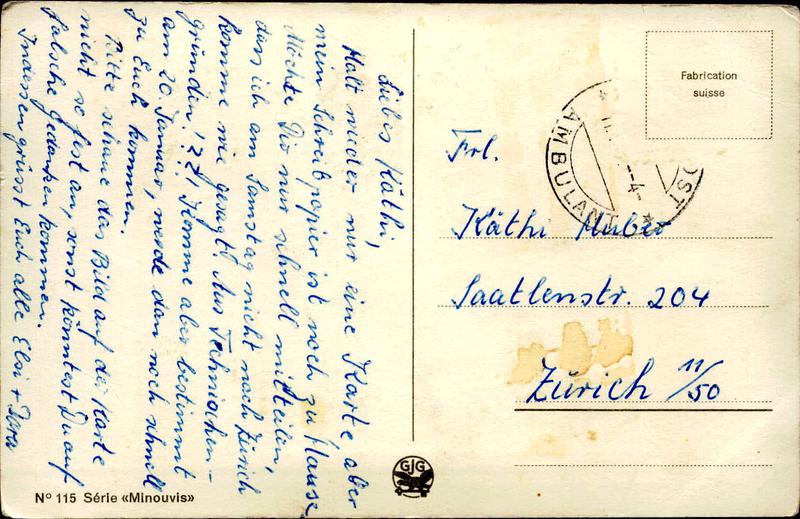 Liebes Käthi,
Halt wieder nur eine Karte aber
mein Schreibpapier ist noch zu Hause
Möchte Dir nur schnell mitteilen,
dass ich am Samstag nicht nach Zürich
komme wie gesagt! Aus Technischen-
gründen! ?? ! Komme aber bestimmt
am 20. Januar, werde dan noch schnell
zu Euch kommen.
Bitte schaue das Bild auf der Karte
nicht so fest an, sonst könntest Du auf
falsche Gedanken kommen.
Indessen grüsst Euch alle Elsi +
Nº 115 Série «Minouvis»
GJG
Fabrication
suisse
AMBULANT
Frl.
Käthi Huber
Saatlenstr. 204
Zürich 11/50